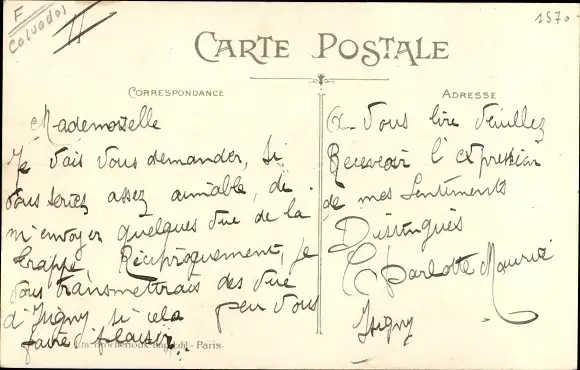 F
Calvados
1570
CARTE POSTALE
CORRESPONDANCE
Mademoiselle
Je vais vous demander, si
vous seriez assez aimable, de
m'envoyer quelques vue de la
Trappe, Réciproquement, je
vous transmettrais des vue
d'Isigny si cela peu vous
faire plaisir.
Imp-Edit - Paris
ADRESSE
A vous lire Veuillez
Recevoir l'expression
de mes Sentiments
Distingués
Charlotte Maurice
Isigny